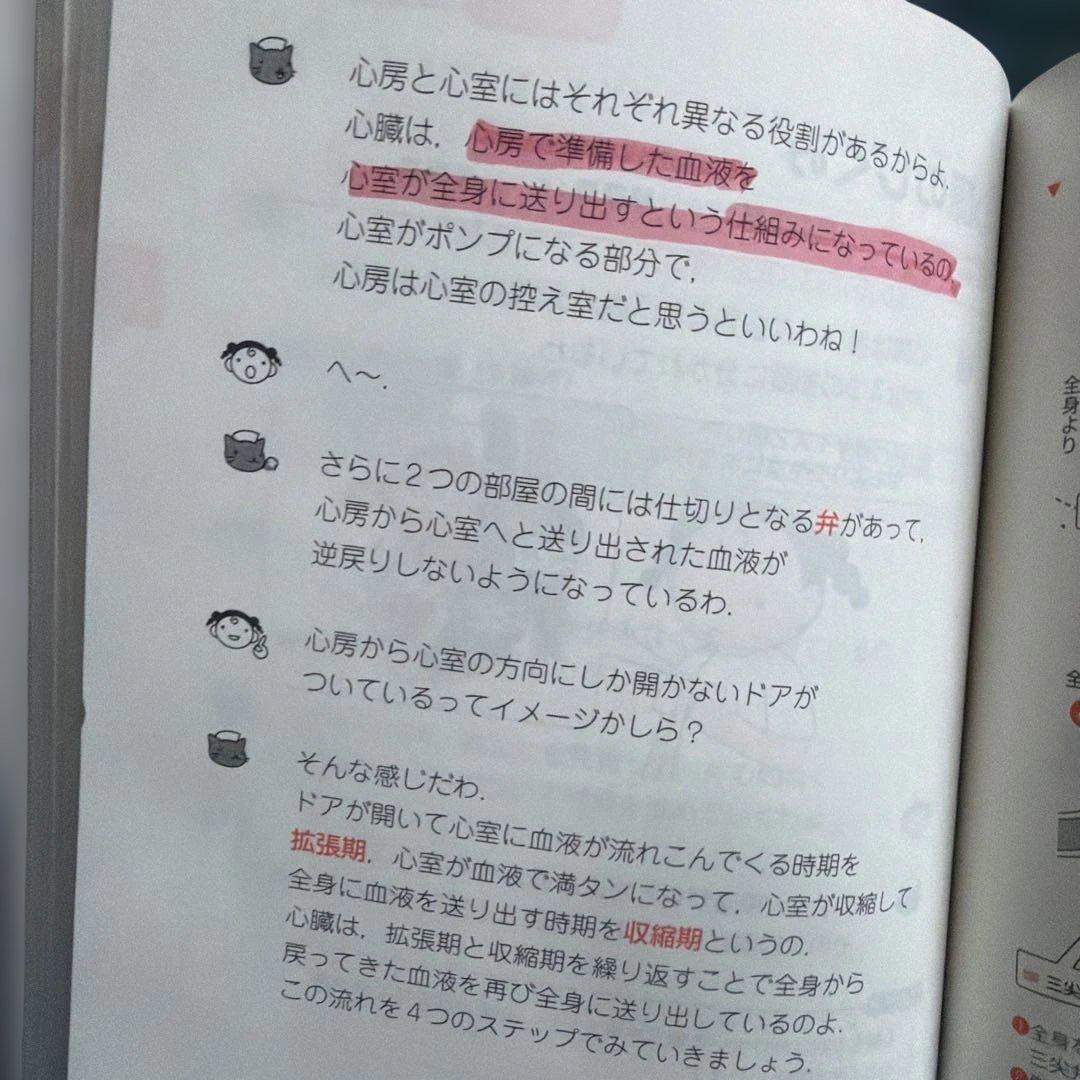 心房と心室にはそれぞれ異なる役割があるからよ.
心臓は，心房で準備した血液を
心室が全身に送り出すという仕組みになっているの.
心室がポンプになる部分で，
心房は心室の控え室だと思うといいわね！
へ〜.
さらに２つの部屋の間には仕切りとなる弁があって，
心房から心室へと送り出された血液が
逆戻りしないようになっているわ.
心房から心室の方向にしか開かないドアが
ついているってイメージかしら？
そんな感じだわ.
ドアが開いて心室に血液が流れこんでくる時期を
拡張期，心室が血液で満タンになって，心室が収縮して
全身に血液を送り出す時期を収縮期というの.
心臓は，拡張期と収縮期を繰り返すことで全身から
戻ってきた血液を再び全身に送り出しているのよ.
この流れを４つのステップでみていきましょう.
全身より
全
三尖
❶全身
三尖